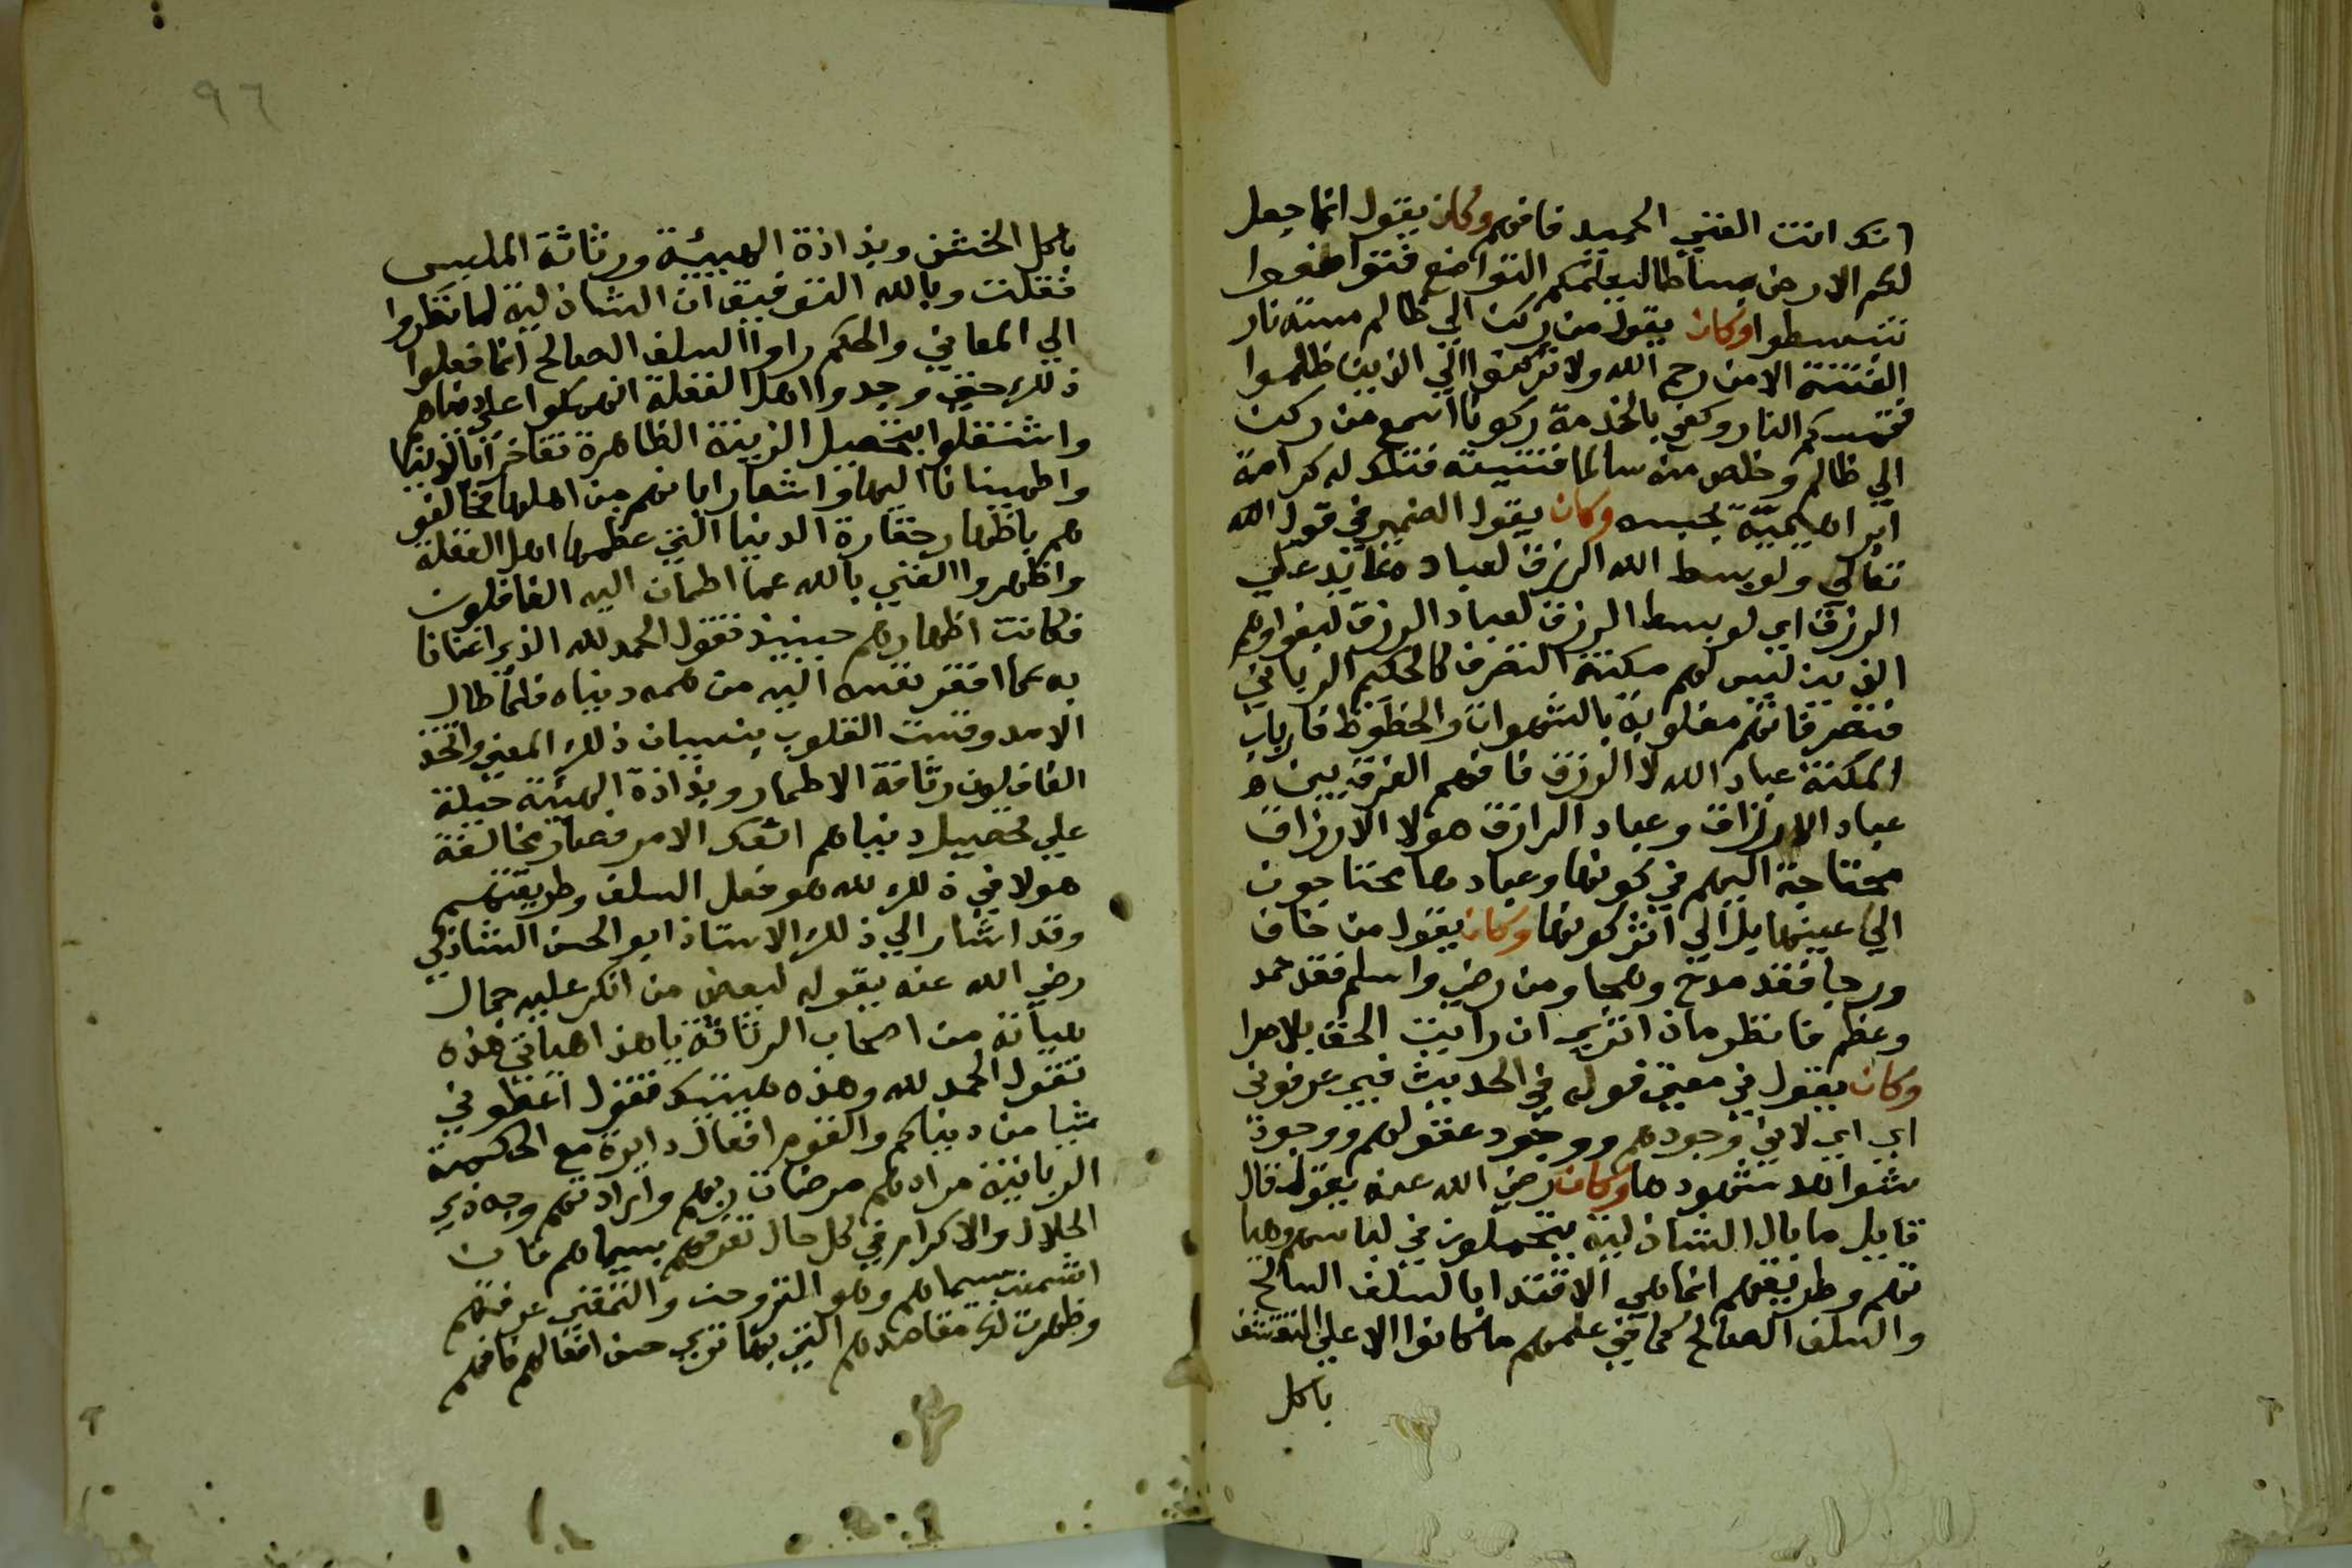 انك انت الغني الحميد فافهم وكان يقول انما جعل
لكم الارض بساطا ليعلمكم التواضع فتواضعوا
تنبسطوا وكان يقول من ركن الي ظالم مسته نار
الفتنة الا من رحم الله ولا تركنوا الي الذين ظلموا
فتمسكم النار وكفي بالخدمة ركونا اسمع من ركن
الي ظالم وخلص منه سالما فتنيته فتلك له كرامة
ابراهيمية بحبسه وكان يقول الضمير في قول الله
تعالي ولو بسط الله الرزق لعباده عايد علي
الرزق اي لو بسط الرزق لعباد الرزق لبغوا وهم
الذين ليس لهم مكنة التصرف كالحكيم الرباني
فتصرفاتهم مغلوبة بالشهوات والحظوظ فارباب
المكنة عباد الله لا الرزق فافهم الفرق بين
عباد الارزاق وعباد الرازق هولا الارزاق
محتاجة اليهم في كونها وعبادها محتاجون
الي عينها بل الي اثر كونها وكان يقول من خاف
ورجا فقد مدح وهجا ومن رضي واسلم فقد حمد
وعظم فانظر ماذا تري ان رايت الحق بلا مرا
وكان يقول في معني قوله في الحديث فبي عرفوني
اي اي لاني وجودهم ووجود عقولهم ووجود
شواهد شهودها وكان رضي الله عنه يقول قال
قايل ما بال الشاذلية يتجملون في لباسهم وهيا
تهم وطريقهم انما هي الاقتدا بالسلف السالح
والسلف الصالح كما في علمهم ما كانوا الا علي التقشف
باكل
٩٦
باكل الخشن وبذاذة الهيئة ورثاثة الملبس
فقلت وبالله التوفيق ان الشاذلية لما نظروا
الي المعاني والحكم راوا السلف الصالح انما فعلوا
ذلك حين وجدوا اهل الغفلة انهمكوا علي دنياهم
واشتغلوا بتحصيل الزينة الظاهرة تفاخرا بالدنيا
واطمينانا اليها واشعارا بانهم من اهلها فخالفو
هم باظهار حقارة الدنيا التي عظمها اهل الغفلة
واظهروا الغني بالله عما اطمان اليه الغافلون
فكانت اظهارهم حينيذ تقول الحمد لله الذي اغنانا
به عما افقر نفسه اليه من همه دنياه فلما طال
الامد وقست القلوب بنسيان ذلك المعني واتخذ
الغافلون رثاثة الاطمار وبذاذة الهيئة حيلة
علي تحصيل دنياهم انعكس الامر فصار مخالفة
هولا في ذلك لله هو فعل السلف وطريقتهم
وقد اشار الي ذلك الاستاذ ابو الحسن الشاذلي
رضي الله عنه بقوله لبعض من انكر عليه جمال
هيأته من اصحاب الرثاثة يا هذا هياتي هذه
تقول الحمد لله وهذه هيئتك تقول اعطوني
شيا من دنياكم والقوم افعال دايرة مع الحكمة
الربانية مرادهم مرضات ربهم وارادتهم وجه ذي
الجلال والاكرام في كل حال تعرفهم بسيماهم فان
اشمت سيماهم وهو التروحن والتمعني عرفتهم
وظهرت لك مقاصدهم التي بها تري حسن افعالهم فافهم